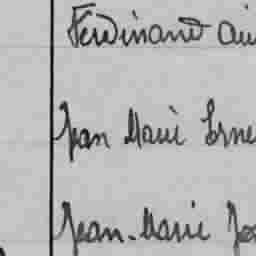 Ferdinand ai
Jean Marie Erne
Jean-Marie Jos